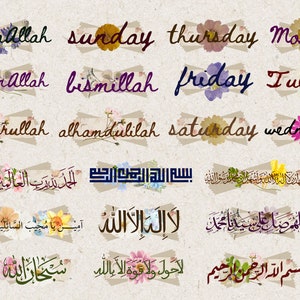 rAllah sunday thursday Mo
rAllah bismillah friday Tu
rullah alhamdulilah saturday wedn
الحمد لله رب العالمين بسم الله الرحمن الرحيم
آمين يا مجيب السائلين لا إله إلا الله اللهم صل على سيدنا محمد
سبحان الله لا حول ولا قوة إلا بالله بسم الله الرحمن الرحيم